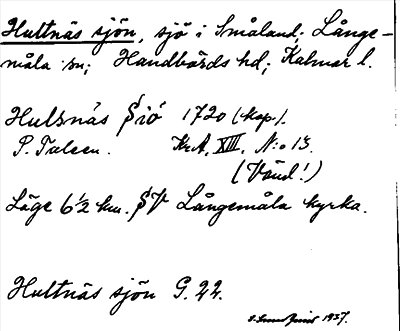 Hultnäs sjön, sjö i Småland; Långe-
måla sn; Handbörds hd; Kalmar l.
Hulsnäs Siö 1720 (kop).
P. Tolsen. KrA, XIII, N:o 13.
(Vänd!)
Läge 6½ km. SV Långemåla kyrka.
Hultnäs sjön G. 22.
1937.